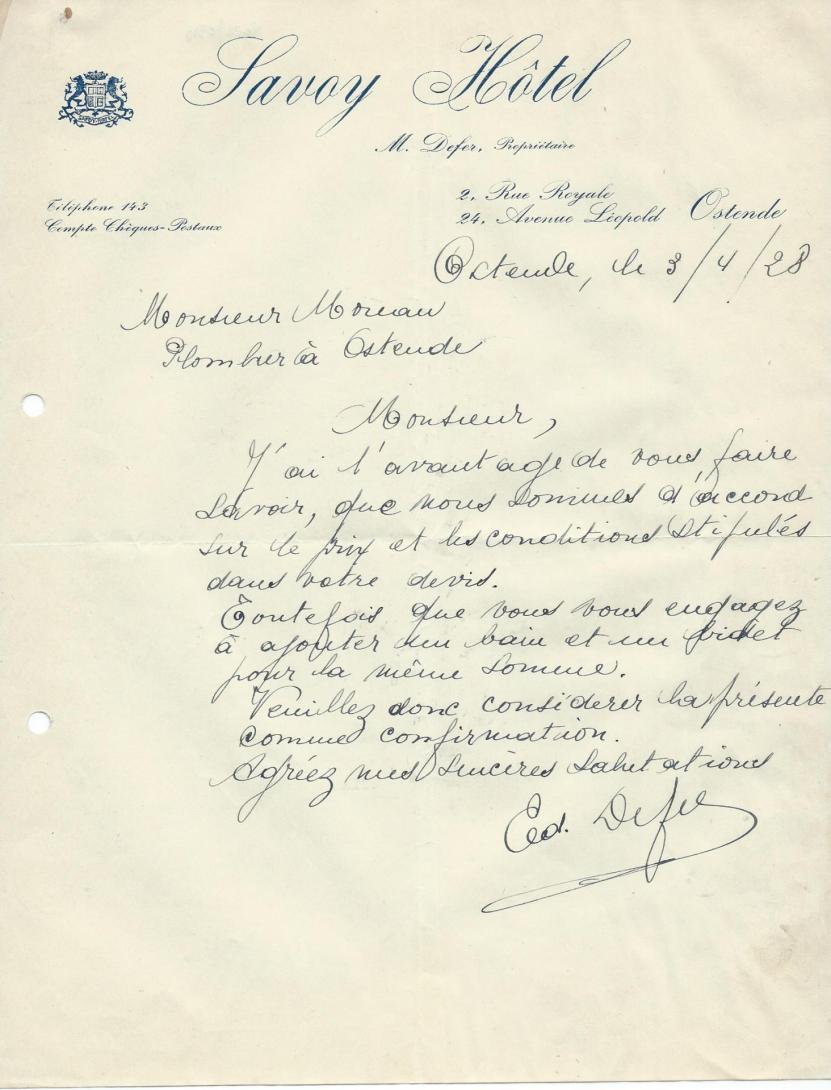 Savoy Hôtel
M. Defer, Propriétaire
Téléphone 143
Compte Chèques-Postaux
2, Rue Royale
24, Avenue Léopold Ostende
Ostende, le 3/4/28
Monsieur Moreau
Plombier à Ostende
Monsieur,
J'ai l'avantage de vous faire
savoir, que nous sommes d'accord
sur le prix et les conditions stipulés
dans votre devis.
Toutefois que vous vous engagez
à ajouter un bain et un bidet
pour la même somme.
Veuillez donc considerer la présente
comme confirmation.
Agréez mes sincères salutations
Ed. Defer